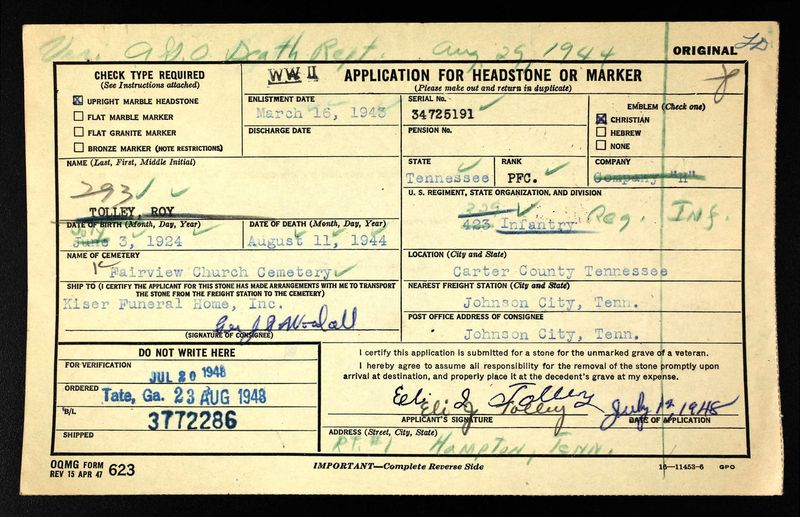 Ver. AGO Death Rept. Aug 29, 1944
ORIGINAL
CHECK TYPE REQUIRED
(See Instructions attached)
UPRIGHT MARBLE HEADSTONE
FLAT MARBLE MARKER
FLAT GRANITE MARKER
BRONZE MARKER (NOTE RESTRICTIONS)
WW II
APPLICATION FOR HEADSTONE OR MARKER
(Please make out and return in duplicate)
ENLISTMENT DATE
March 16, 1943
DISCHARGE DATE
SERIAL No.
34725191
PENSION No.
EMBLEM (Check one)
CHRISTIAN
HEBREW
NONE
NAME (Last, First, Middle Initial)
293
TOLLEY, ROY
STATE
Tennessee
RANK
PFC.
COMPANY
Company "H"
U. S. REGIMENT, STATE ORGANIZATION, AND DIVISION
423 Infantry
Reg. Inf.
DATE OF BIRTH (Month, Day, Year)
June 3, 1924
DATE OF DEATH (Month, Day, Year)
August 11, 1944
NAME OF CEMETERY
Fairview Church Cemetery
LOCATION (City and State)
Carter County Tennessee
SHIP TO (I CERTIFY THE APPLICANT FOR THIS STONE HAS MADE ARRANGEMENTS WITH ME TO TRANSPORT
THE STONE FROM THE FREIGHT STATION TO THE CEMETERY)
Kiser Funeral Home, Inc.
(SIGNATURE OF CONSIGNEE)
NEAREST FREIGHT STATION (City and State)
Johnson City, Tenn.
POST OFFICE ADDRESS OF CONSIGNEE
Johnson City, Tenn.
DO NOT WRITE HERE
FOR VERIFICATION
JUL 20 1948
ORDERED
Tate, Ga. 23 AUG 1948
B/L
3772286
SHIPPED
I certify this application is submitted for a stone for the unmarked grave of a veteran.
I hereby agree to assume all responsibility for the removal of the stone promptly upon
arrival at destination, and properly place it at the decedent's grave at my expense.
Eli J Tolley
Eli J Tolley
July 12 1948
APPLICANT'S SIGNATURE
DATE OF APPLICATION
ADDRESS (Street, City, State)
RT. #1 Hampton, Tenn.
OQMG FORM
REV 15 APR 47
623
IMPORTANT—Complete Reverse Side
16—11453-6 GPO